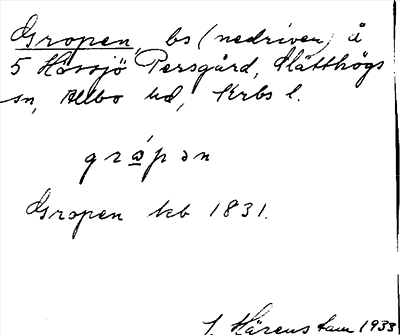 Gropen, bs (nedriven) å
5 Hössjö Persgård, Slätthögs
sn, Allbo hd, Krbs l.
grǻpən
Gropen kb 1831.
J. Härens tam 1933